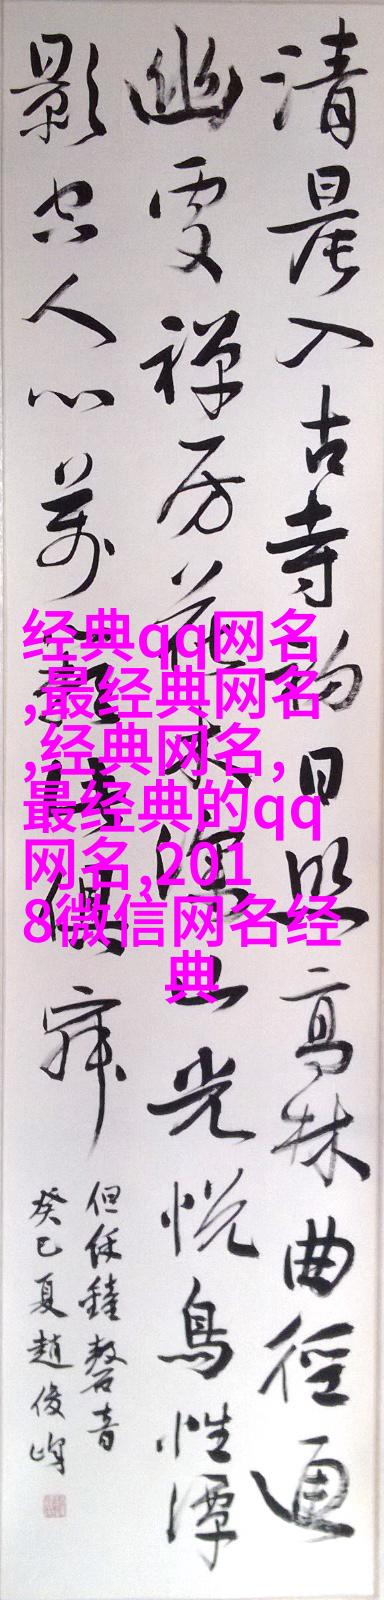 清晨入古寺初日照高林曲徑通
幽處禪房花木深山光悅鳥性潭
影空人心萬籟此俱寂
但餘鐘磬音
癸巳夏趙俊峰
经典qq网名
,最经典网名
,经典网名,
最经典的qq
网名,201
8微信网名经
典